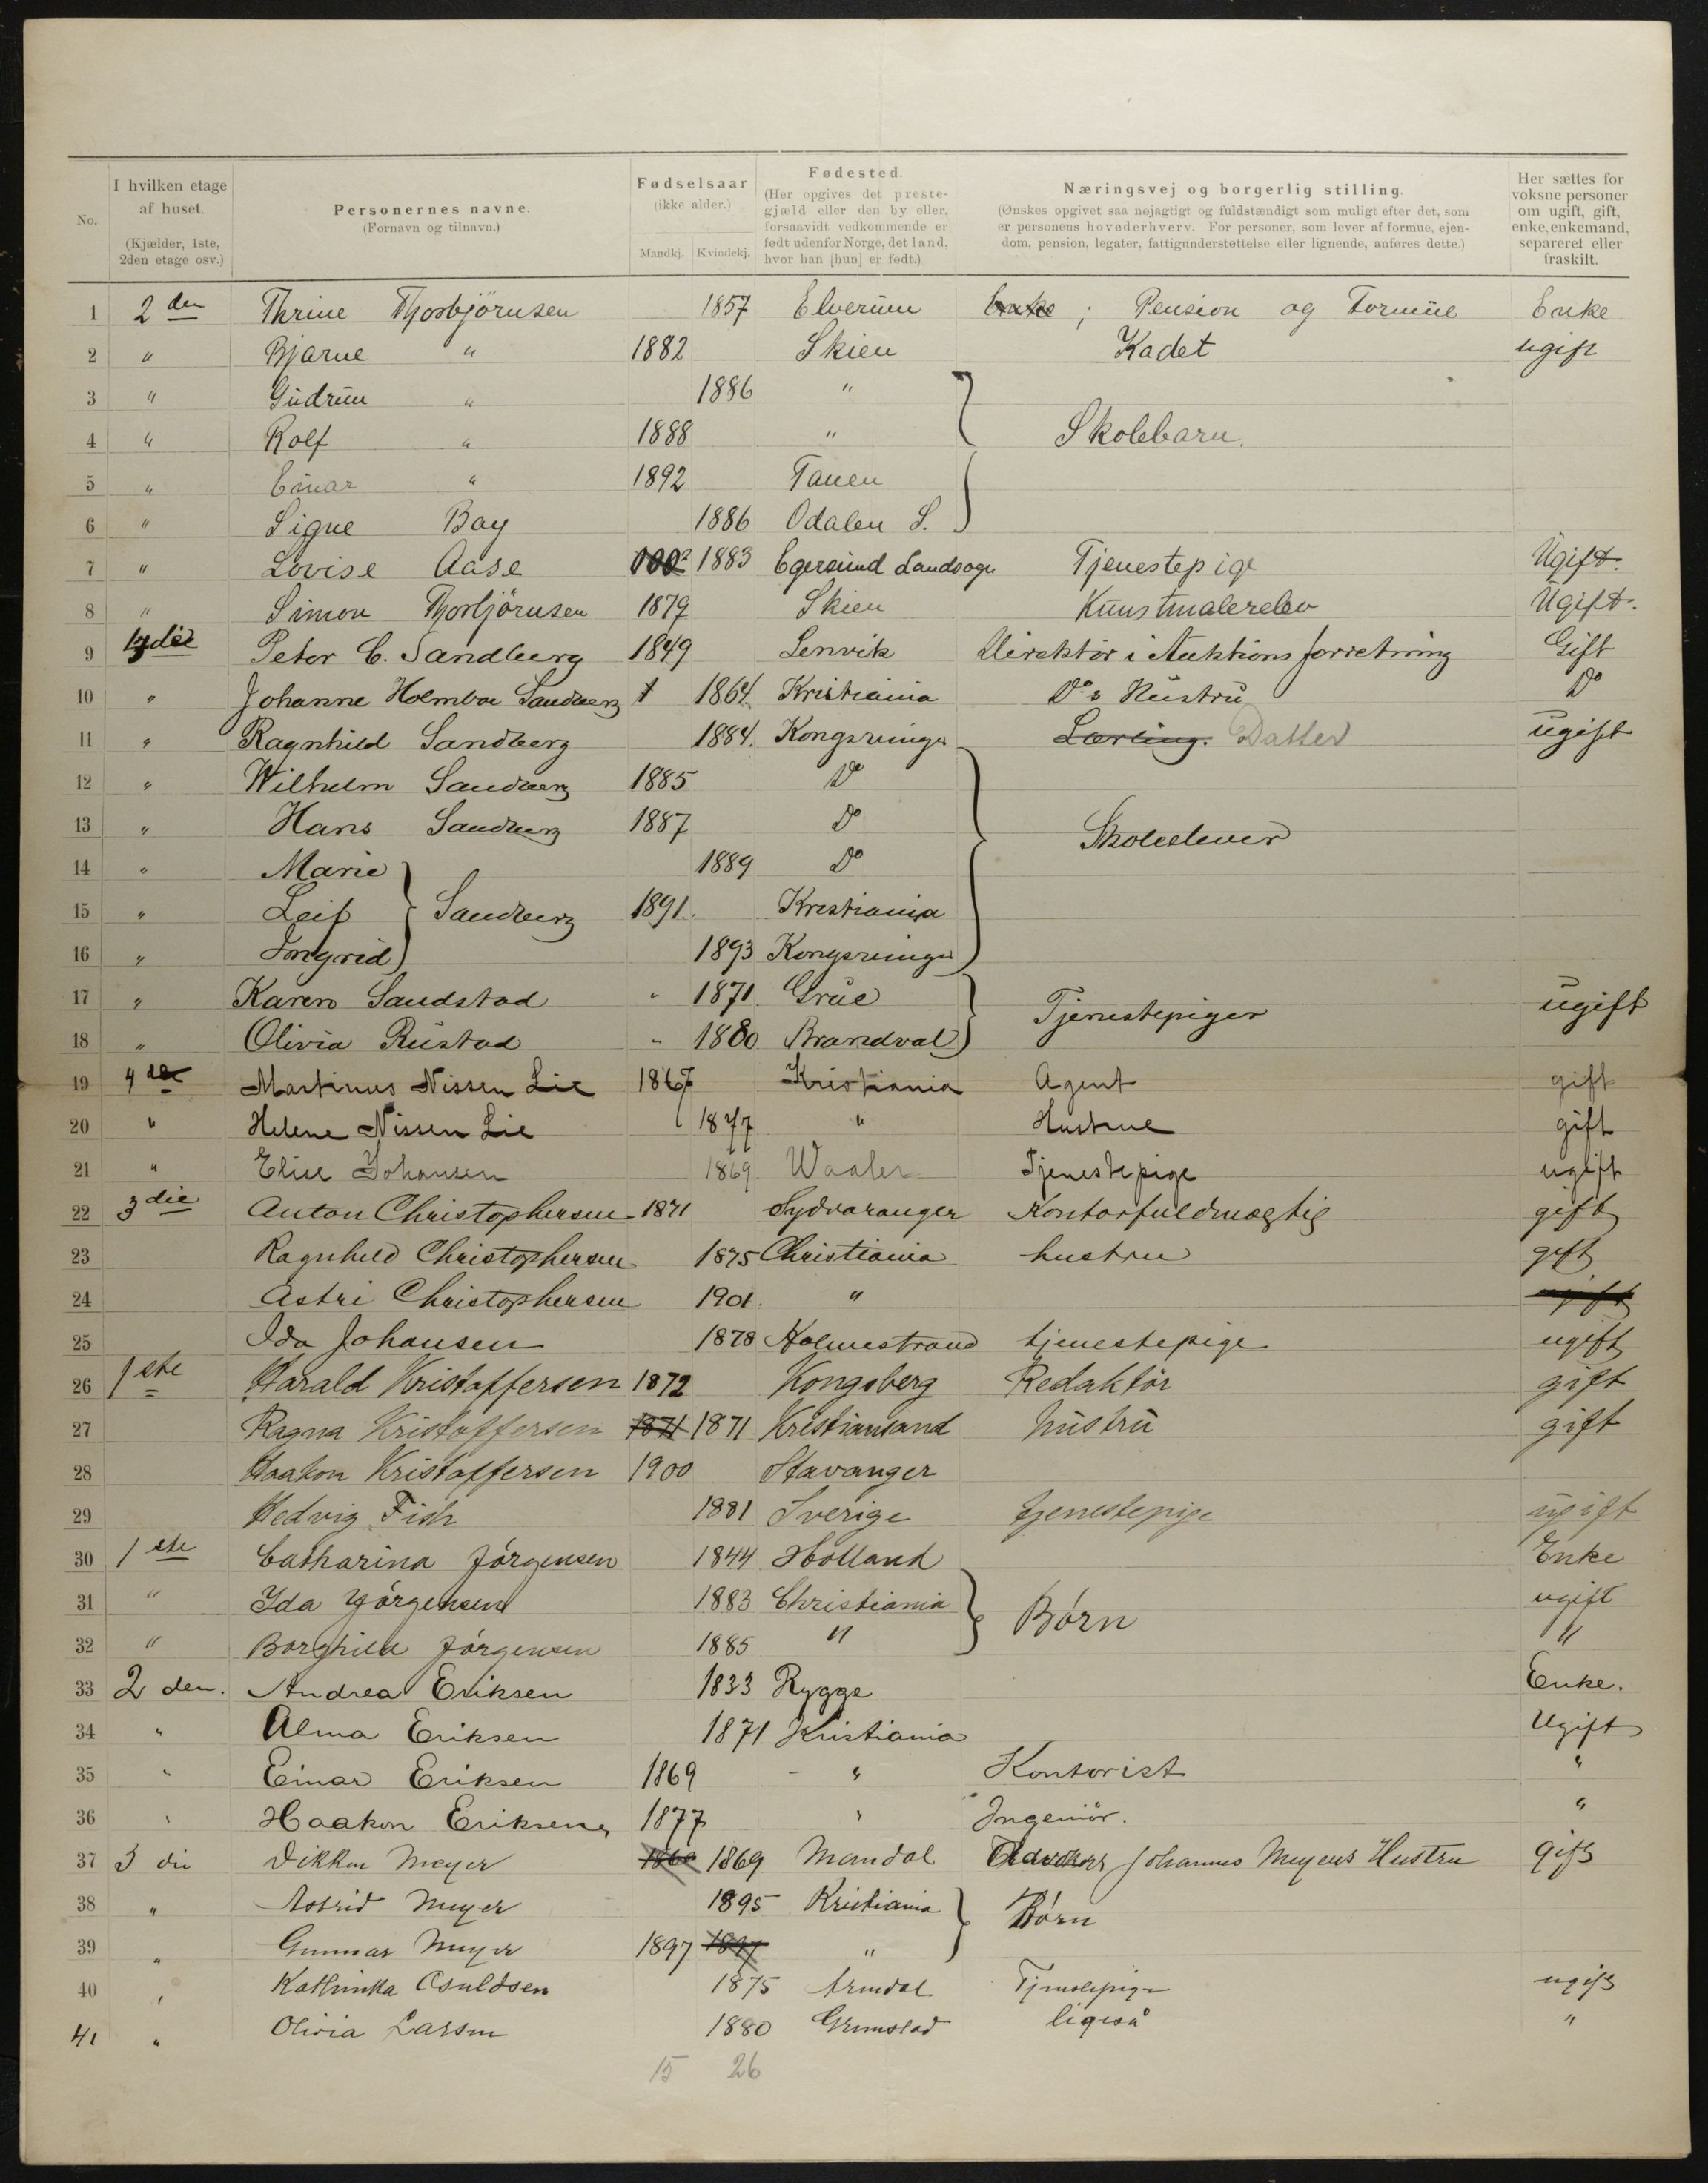 No.
I hvilken etage af huset. (Kjælder, 1ste, 2den etage osv.)
Personernes navne. (Fornavn og tilnavn.)
Fødselsaar (ikke alder.) Mandkj. Kvindekj.
Fødested. (Her opgives det prestegjæld eller den by eller, forsaavidt vedkommende er født udenfor Norge, det land, hvor han [hun] er født.)
Næringsvej og borgerlig stilling. (Ønskes opgivet saa nøjagtigt og fuldstændigt som muligt efter det, som er personens hovederhverv. For personer, som lever af formue, ejendom, pension, legater, fattigunderstøttelse eller lignende, anføres dette.)
Her sættes for voksne personer om ugift, gift, enke, enkemand, separeret eller fraskilt.
1 2den Thrine Thorbjörnsen 1857 Elverum Enke; Pension og Formue Enke
2 " Bjarne " 1882 Skien Kadet ugift
3 " Gudrun " 1886 "
4 " Rolf " 1888 " Skolebarn.
5 " Einar " 1892 Tanen
6 " Signe Bay 1886 Odalen S.
7 " Lovise Aase 1883 Egersund Landsogn Tjenestepige Ugift.
8 " Simon Thorbjörnsen 1879 Skien Kunstmalerelev Ugift.
9 3die Peter C. Sandberg 1849 Lenvik Direktör i Auktionsforretning Gift
10 " Johanne Holmboe Sandberg 1864. Kristiania Do's Hustru Do
11 " Ragnhild Sandberg 1884. Kongsvinger Lærling. Datter ugift
12 " Wilhelm Sandberg 1885 Do
13 " Hans Sandberg 1887 Do Skoleelever
14 " Marie 1889 Do
15 " Leif Sandberg 1891. Kristiania
16 " Ingrid 1893 Kongsvinger
17 " Karen Sandstad " 1871. Grue Tjenestepiger ugift
18 " Olivia Rustad " 1880 Brandval
19 4de Martinus Nissen Lie 1867 Kristiania Agent gift
20 " Helene Nissen Lie 1877 " Hustrue gift
21 " Elise Johansen 1869 Waaler Tjenestepige ugift
22 3die Anton Christophersen 1871 Sydvaranger Kontorfuldmægtig gift
23 Ragnhild Christophersen 1875 Christiania hustru gift
24 Astri Christophersen 1901. " ugift
25 Ida Johansen 1878 Holmestrand tjenestepige ugift
26 1ste Harald Kristoffersen 1872 Kongsberg Redaktör gift
27 Ragna Kristoffersen 1871 1871 Kristiansand hustru gift
28 Haakon Kristoffersen 1900 Stavanger
29 Hedvig Fish 1881 Sverige tjenestepige ugift
30 1ste Catharina Jörgensen 1844 Holland Enke
31 " Ida Jörgensen 1883 Christiania Börn ugift
32 " Borghild Jörgensen 1885 " "
33 2 den. Andrea Eriksen 1833 Rygge Enke.
34 " Alma Eriksen 1871 Kristiania Ugift
35 " Einar Eriksen 1869 " Kontorist "
36 " Haakon Eriksen 1877 " Ingeniör. "
37 3 die Dikken Meyer 1869 Mandal Johannes Meyers Hustru gift
38 " Astrid Meyer 1895 Kristiania Börn
39 " Gunnar Meyer 1897 1897 "
40 " Kathinka Osuldsen 1875 Arendal Tjenestepige ugift
41 " Olivia Larsen 1880 Grimstad ligeså "
15 26